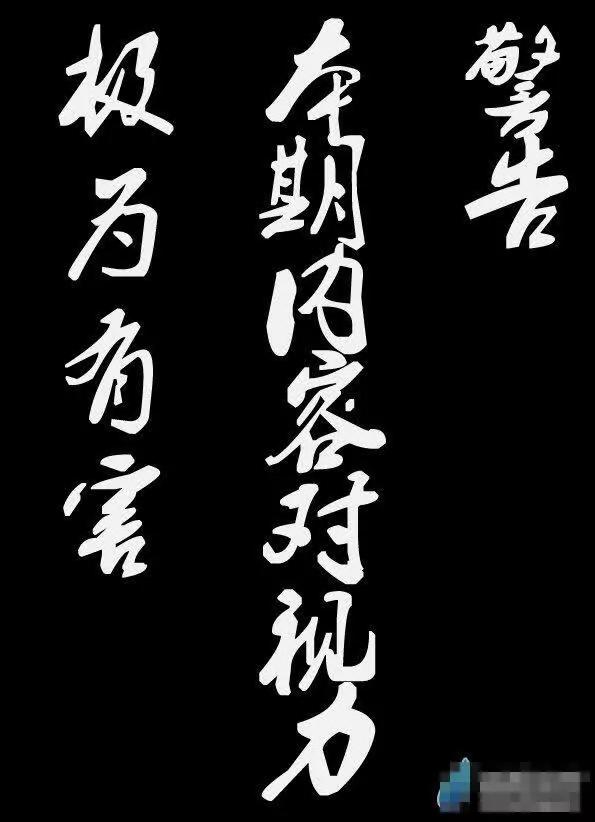 警告
本期内容对视力
极为有害